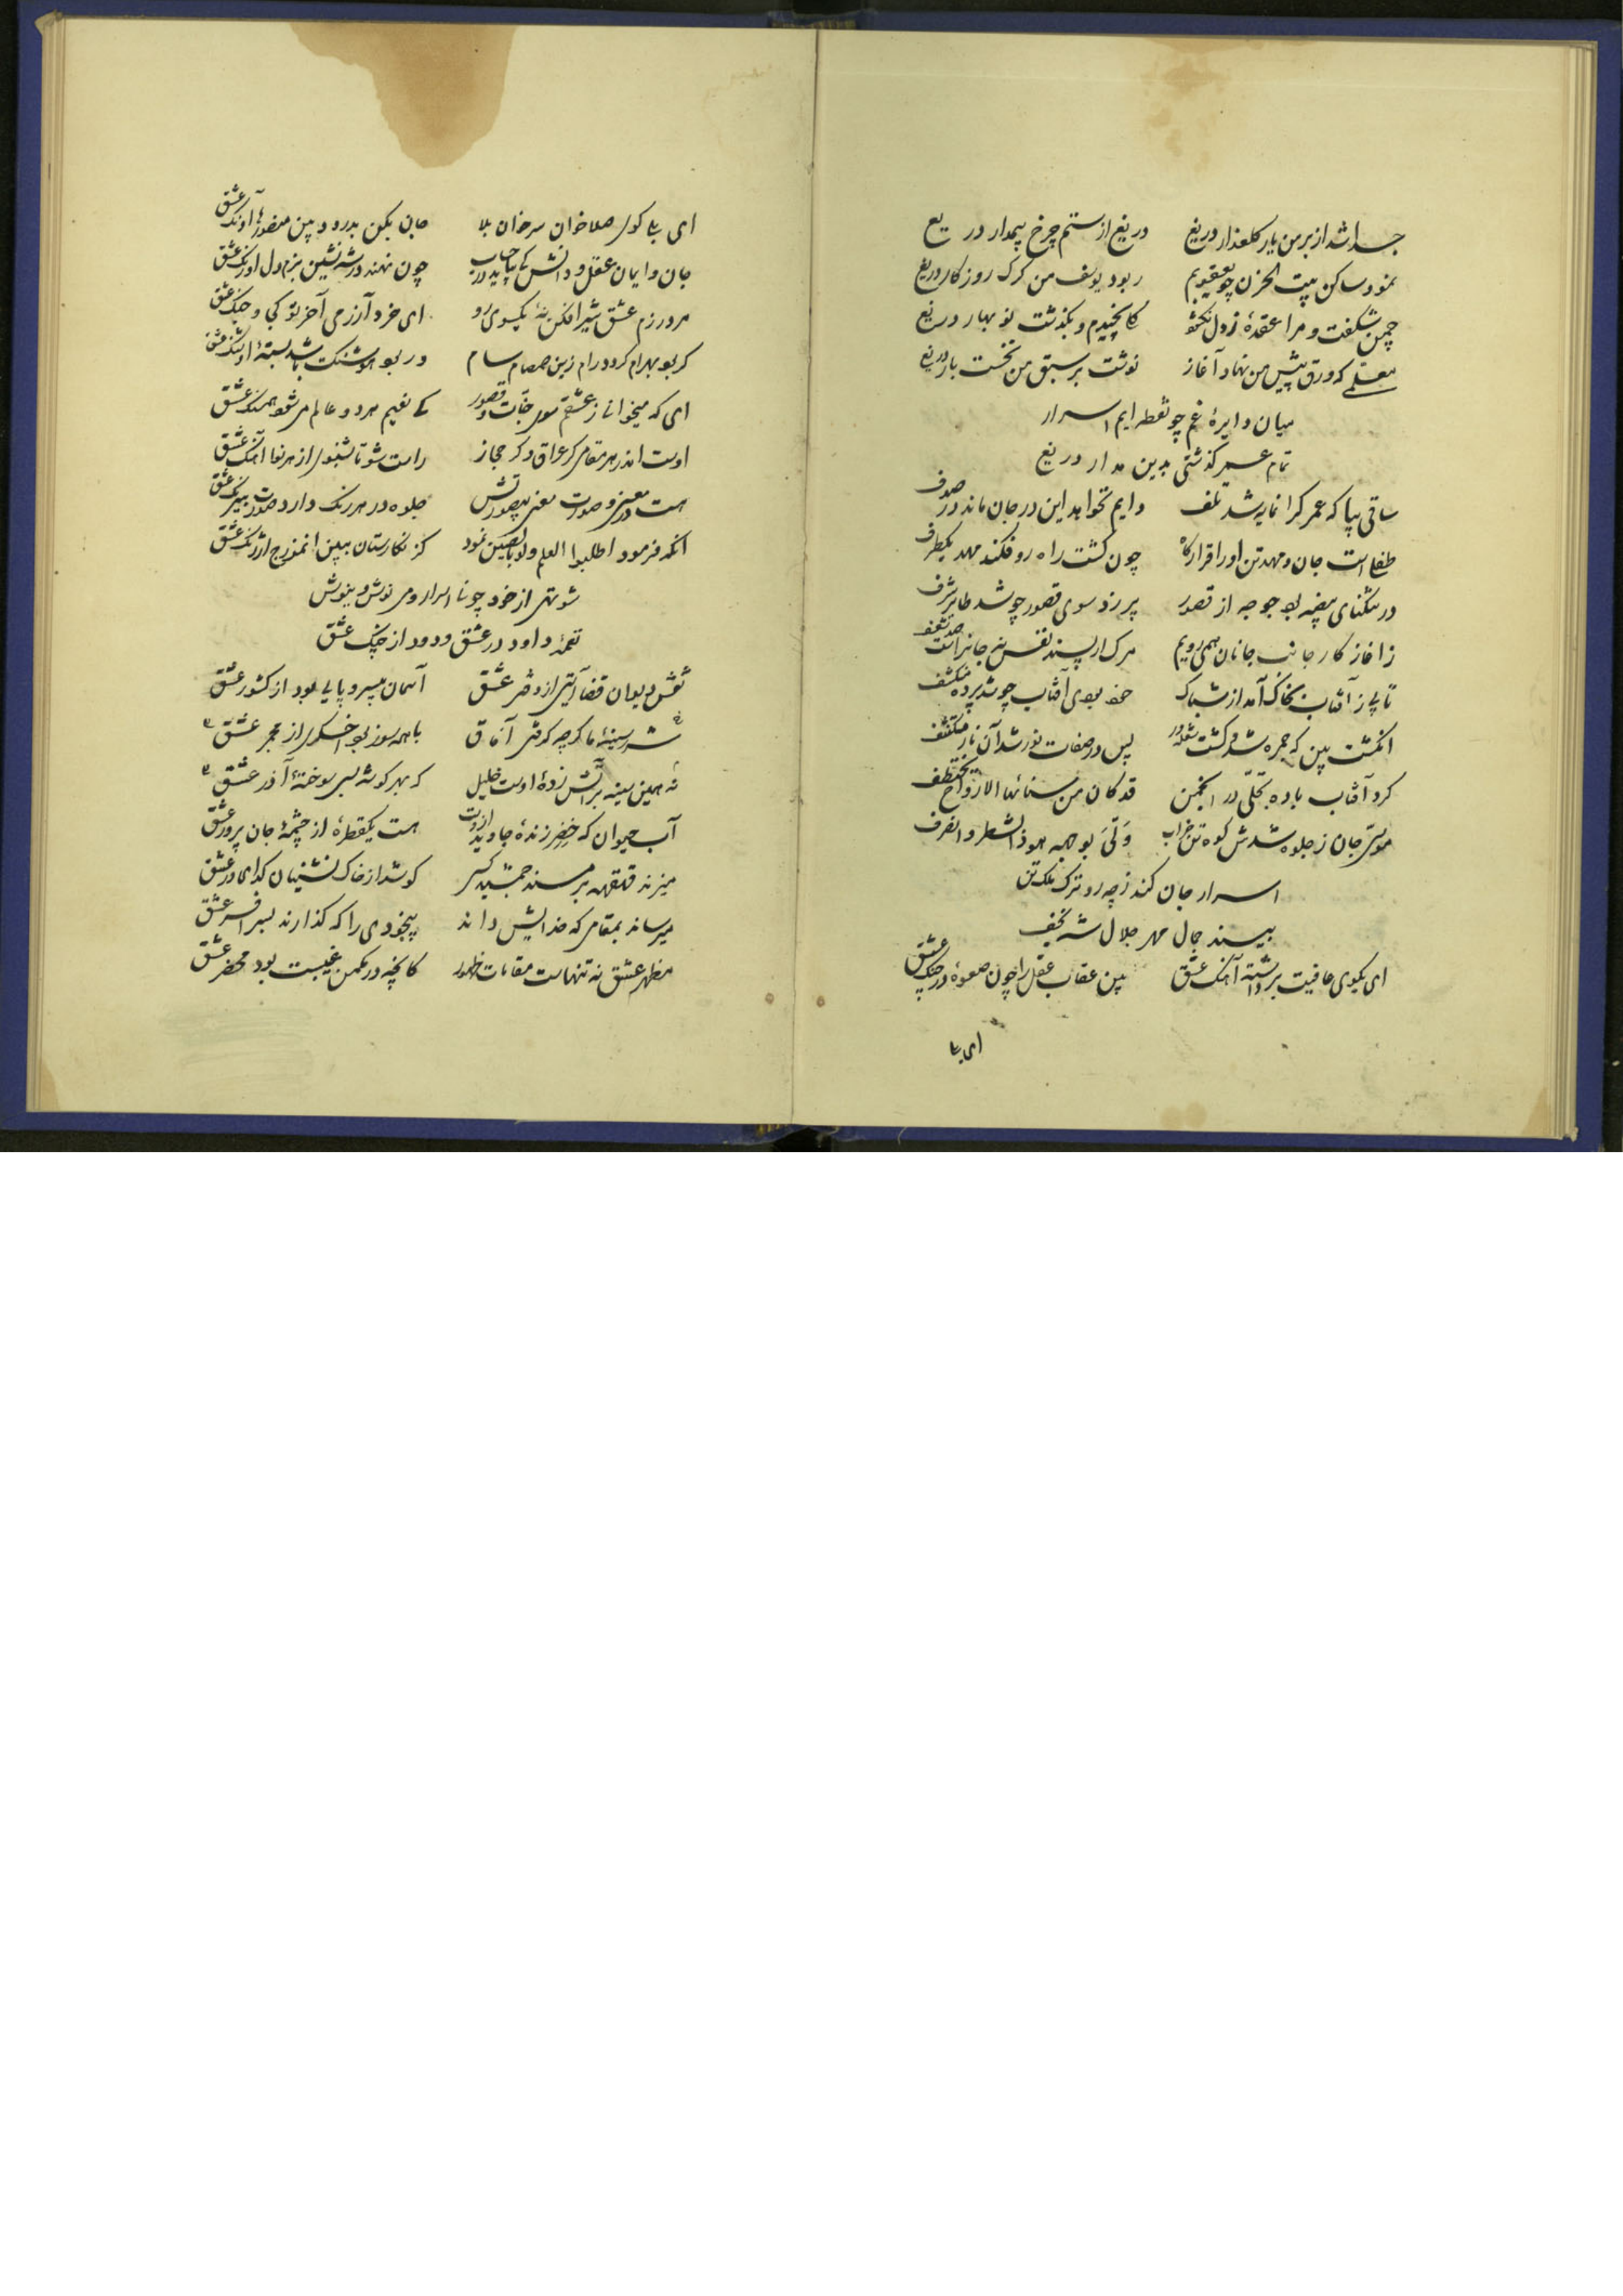 جدا شد از بر من یار کلعذار دریغ دریغ از ستم چرخ بیمدار دریغ
نمود ساکن بیت الحزن چو یعقوبم ربود یوسف من کرک روزکار دریغ
چمن شکفت و مرا عقدهٔ ز دل نکشود کلی نچیدم و بکذشت نو بهار دریغ
معلمی که ورق پیش من نهاد آغاز نوشت بر سبق من نخست بار دریغ
میان دایرهٔ غم چو نقطه ایم اسرار
تمام عمر کذشتی بدین مدار دریغ
ساقی بیا که عمر کرانمایه شد تلف دایم نخواهد این در جان ماند در صدف
طفل است جان و مهد تن او را قرارکاه چون کشت راه رو فکند مهد یکطرف
در تنکنای بیضه بود جوجه از قصور پر زد سوی قصور چو شد طایر شرف
ز آغاز کار جانب جانان همی رویم مرک ار پسند نفس نه جانراست صد شعف
تابی ز آفتاب بخاک آمد از شباک خود بود آفتاب چو شد پرده منکشف
انکشت بین که جمره شد و کشت شعله ور پس در صفات نور شد آن نار مکتشف
کرد آفتاب باده تجلی در انجمن قد کان من سنائها الارواح تختطف
موسی جان ز جلوه شدش کوه تن خراب ولی بوجهه هو ذا الشطر وانصرف
اسرار جان کند ز چه رو ترک ملک تن
بیند جمال مهر جلال شه نجف
ای بکوی عافیت برداشته آهنک عشق بین عقاب عقل را چون صعوهٔ در چنک عشق
ای بنا
ای بنا کوی صلا خوان سر خوان بلا جانی بکن بدرود و بین منصورها آونک عشق
جان و ایمان عقل و دانش کی بیاید در حساب چون نهند در شه نشین بزم دل اورنک عشق
مرد رزم عشق شیر افکن نهٔ یکسوی رو ای خرد آزرمی آخر تو کی و جنک عشق
کر بود بهرام کرد در رام زین صمصام سام ور بود هوشنک باشد بستهٔ اوشنک عشق
ای که میخوانی ز عشقم سوی جنات و قصور کی نعیم هر دو عالم می شود همسنک عشق
اوست اندر هر مقامی کر عراق و کر حجاز راست شو تا بشنوی از هر نوا آهنک عشق
هست در معنی و صورت معنی بیصورتش جلوه در هر رنک دارد صورت بیرنک عشق
آنکه فرمود اطلبوا العلم ولو بالصین نمود کز نکارستان ببین انموزج ارژنک عشق
شو تهی از خود چو نا اسرار و می نوش و نیوش
نغمهٔ داود در عشق ودود از چنک عشق
نقش دیوان قضا آیتی از دفتر عشق آسمان بیسر و پایی بود از کشور عشق
شرر سینهٔ ما کرچه کرفتی آفاق با همه سوز بود اخکری از مجمر عشق
نه همین سینه بر آتش زدهٔ اوست خلیل که بهر کوشه بسی سوختهٔ آذر عشق
آب حیوان که خضر زندهٔ جاوید ازوست هست یکقطرهٔ از چشمهٔ جان پرور عشق
میزند قهقهه بر مسند جمشید کسی کو شد از خاک نشینان کدای در عشق
میرساند بمقامی که خدایش داند بیخودی را که کذارند بسر افسر عشق
مظهر عشق نه تنهاست مقامات ظهور کانچه در مکمن غیبست بود محضر عشق